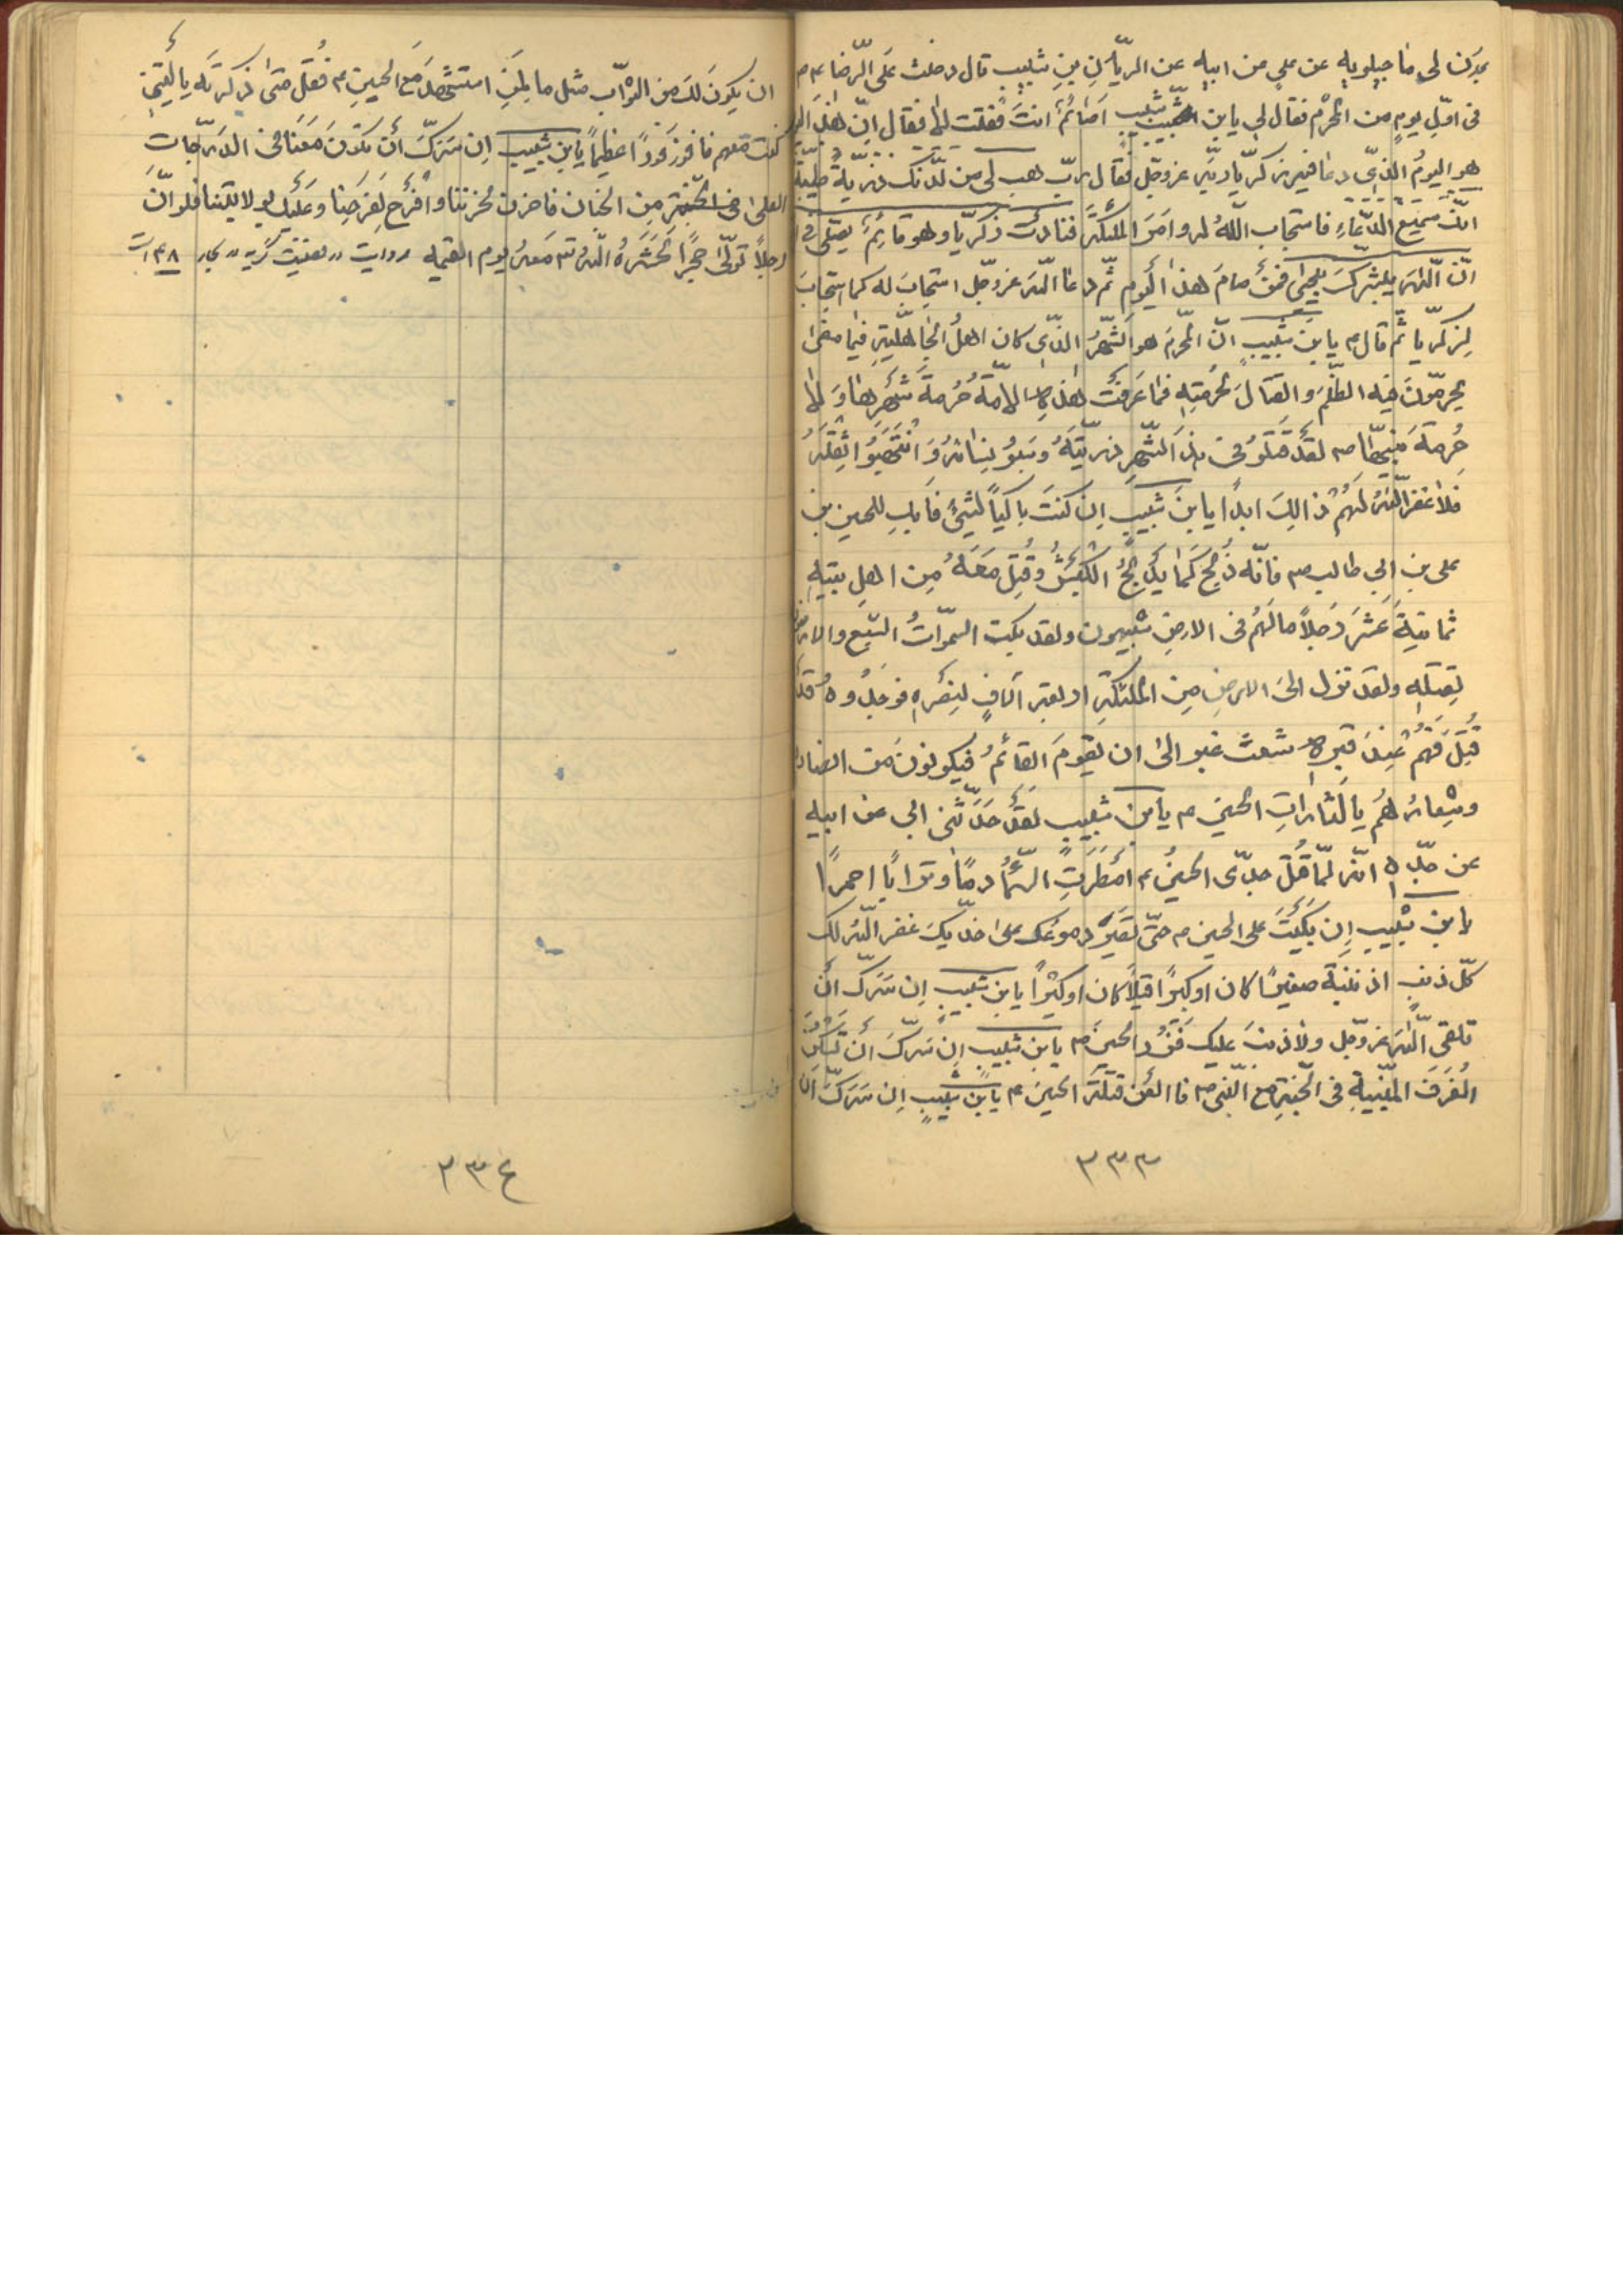 عن علي عن ابيه عن الريّان بن شبيب قال دخلت على الرّضا ع
فى اوّل يوم من المحرّم فقال لي يا بن شبيب اصائم انت فقلت لا فقال انّ هذا
هو اليوم الّذى دعا فيه زكريّا ربّه عزوجلّ فقال ربّ هب لى من لدنك ذريّة طيّبة
انّك سميع الدّعاء فاستجاب اللّه له و امر الملئكة فنادت زكريّا و هو قائم يصلّى فى
انّ اللّه يبشّرك بيحيى فمن صام هذا اليوم ثمّ دعا اللّه عزوجلّ استجاب له كما استجاب
لزكريّا ثمّ قال يا بن شبيب انّ المحرّم هو الشّهر الّذى كان اهل الجاهليّة فيما مضى
يحرّمون فيه الظّلم و القتال لحرمته فما عرفت هذه الامّة حرمة شهرها و لا
حرمة نبيّها ص لقد قتلو فى هذا الشّهر ذريّته و سبو نسائه و انتهبو اثقله
فلا غفر اللّه لهم ذالك ابداً يا بن شبيب ان كنت باكياً لشيئ فابك للحسين بن
على بن ابي طالب ع فانّه ذبح كما يذبح الكبش و قتل معه من اهل بيته
ثمانية عشر رجلاً مالهم فى الارض شبيهون و لقد بكت السّموات السّبع و الارض
لقتله و لقد نزل الى الارض من الملئكة اربعة آلاف لنصره فوجدوه قد
قتل فهم عند قبره شعث غبر الى ان يقوم القائم فيكونون من انصاره
و شعارهم يا لثارات الحسين ع يا بن شبيب لقد حدّثنى ابي عن ابيه
عن جدّه انّه لمّا قتل جدّى الحسين ع امطرت السّماء دماً و تراباً احمراً
يا بن شبيب ان بكيت على الحسين ع حتّى تصير دموعك على خدّيك غفر اللّه لك
كلّ ذنب اذنبته صغيراً كان او كبيراً قليلاً كان او كثيراً يا بن شبيب ان سرّك ان
تلقى اللّه عزوجلّ و لا ذنب عليك فزر الحسين ع يا بن شبيب ان سرّك ان تسكن
الغرف المبنيّة فى الجنّة مع النّبى ص فالعن قتلة الحسين ع يا بن شبيب ان سرّك ان
٣٣٣
ان يكون لك من الثّواب مثل ما لمن استشهد مع الحسين ع فقل متى ذكرته يا ليتنى
كنت معهم فافوز فوزاً عظيماً يا بن شبيب ان سرّك ان تكون معنا فى الدّرجات
العلى من الجنان فاحزن لحزننا و افرح لفرحنا و عليك بولايتنا فلو انّ
رجلاً تولّى حجراً لحشره اللّه معه يوم القيمه
٣٣٤